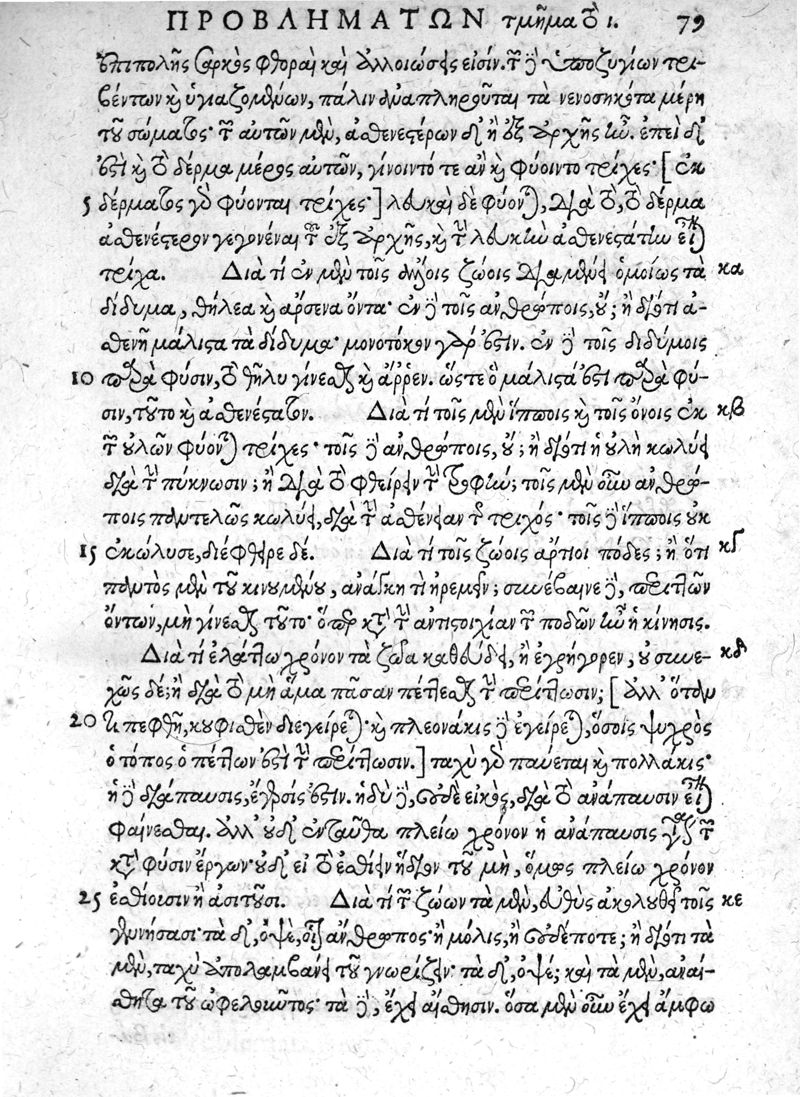 ΠΡΟΒΛΗΜΑΤΩΝ τμῆμα τὸ ι. 79
ἐπιπολῆς σαρκὸς φθοραὶ καὶ ἀλλοιώσεις εἰσίν. τῶν δὲ ὑποζυγίων τρι-
βέντων καὶ ὑγιαζομένων, πάλιν ἀναπληροῦται τὰ νενοσηκότα μέρη
τοῦ σώματος· τῶν αὐτῶν μὲν, ἀσθενεστέρων δ' ἢ ἐξ ἀρχῆς ἦν. ἐπεὶ δ'
ἐστὶ καὶ τὸ δέρμα μέρος αὐτῶν, γίνοιντό τε ἂν καὶ φύοιντο τρίχες· [ἐκ
5 δέρματος γὰρ φύονται τρίχες·] λευκαὶ δὲ φύονται, διὰ τὸ, τὸ δέρμα
ἀσθενέστερον γεγονέναι τῆς ἐξ ἀρχῆς, καὶ τὴν λευκὴν ἀσθενεστάτην εἶναι
τρίχα. Διὰ τί ἐν μὲν τοῖς ἄλλοις ζώοις διαμένει ὁμοίως τὰ κα
δίδυμα, θήλεα καὶ ἄρσενα ὄντα· ἐν δὲ τοῖς ἀνθρώποις, οὔ; ἢ διότι ἀ-
σθενῆ μάλιστα τὰ δίδυμα· μονοτόκον γάρ ἐστιν. ἐν δὲ τοῖς διδύμοις
10 παρὰ φύσιν, τὸ θῆλυ γίνεσθαι καὶ ἄῤῥεν. ὥστε ὃ μάλιστά ἐστι παρὰ φύ-
σιν, τοῦτο καὶ ἀσθενέστατον. Διὰ τί τοῖς μὲν ἵπποις καὶ τοῖς ὄνοις ἐκ κβ
τῶν οὐλῶν φύονται τρίχες· τοῖς δὲ ἀνθρώποις, οὔ; ἢ διότι ἡ οὐλὴ κωλύει
διὰ τὴν πύκνωσιν; ἢ διὰ τὸ φθείρειν τὴν τροφήν; τοῖς μὲν οὖν ἀνθρώ-
ποις παντελῶς κωλύει, διὰ τὴν ἀσθένειαν τῆς τριχός· τοῖς δὲ ἵπποις οὐκ
15 ἐκώλυσε, διέφθειρε δέ. Διὰ τί τοῖς ζώοις ἄρτιοι πόδες; ἢ ὅτι κγ
παντὸς μὲν τοῦ κινουμένου, ἀνάγκη τὶ ἠρεμεῖν; συνέβαινε δὲ, περιττῶν
ὄντων, μὴ γίνεσθαι τοῦτο· ὅπερ κατὰ τὴν ἀντιστοιχίαν τῶν ποδῶν ἦν ἡ κίνησις.
Διὰ τί ἐλάττω χρόνον τὰ ζῶα καθεύδει, ἢ ἐγρήγορεν, οὐ συνε- κδ
χῶς δέ; ἢ διὰ τὸ μὴ ἅμα πᾶσαν πέττεσθαι τὴν περίττωσιν; [ἀλλ' ὅταν
20 τι πεφθῇ, κουφισθὲν διεγείρεται· καὶ πλεονάκις δὲ ἐγείρεται, ὅσοις ψυχρὸς
ὁ τόπος ὁ πέττων ἐστὶ τὴν περίττωσιν.] ταχὺ γὰρ παύεται καὶ πολλάκις·
ἡ δὲ διάπαυσις, ἔγερσίς ἐστιν. ἡδὺ δὲ, οὐδὲ εἰκὸς, διὰ τὸ ἀνάπαυσιν εἶναι
φαίνεσθαι. ἀλλ' οὐδ' ἐνταῦθα πλείω χρόνον ἡ ἀνάπαυσις γίνεται τῶν
κατὰ φύσιν ἔργων· οὐδ' εἰ τὸ ἐσθίειν ἥδιον τοῦ μὴ, ὅμως πλείω χρόνον
25 ἐσθίουσιν ἢ ἀσιτοῦσι. Διὰ τί τῶν ζώων τὰ μὲν, εὐθὺς ἀκολουθεῖ τοῖς κε
γεννήσασι· τὰ δ', ὀψὲ, οἷον ἄνθρωπος· ἢ μόλις, ἢ οὐδέποτε; ἢ διότι τὰ
μὲν, ταχὺ ἀπολαμβάνει τοῦ γνωρίζειν· τὰ δ', ὀψέ; καὶ τὰ μὲν, ἀναί-
σθητα τοῦ ὠφελοῦντος· τὰ δὲ, ἔχει αἴσθησιν. ὅσα μὲν οὖν ἔχει ἄμφω